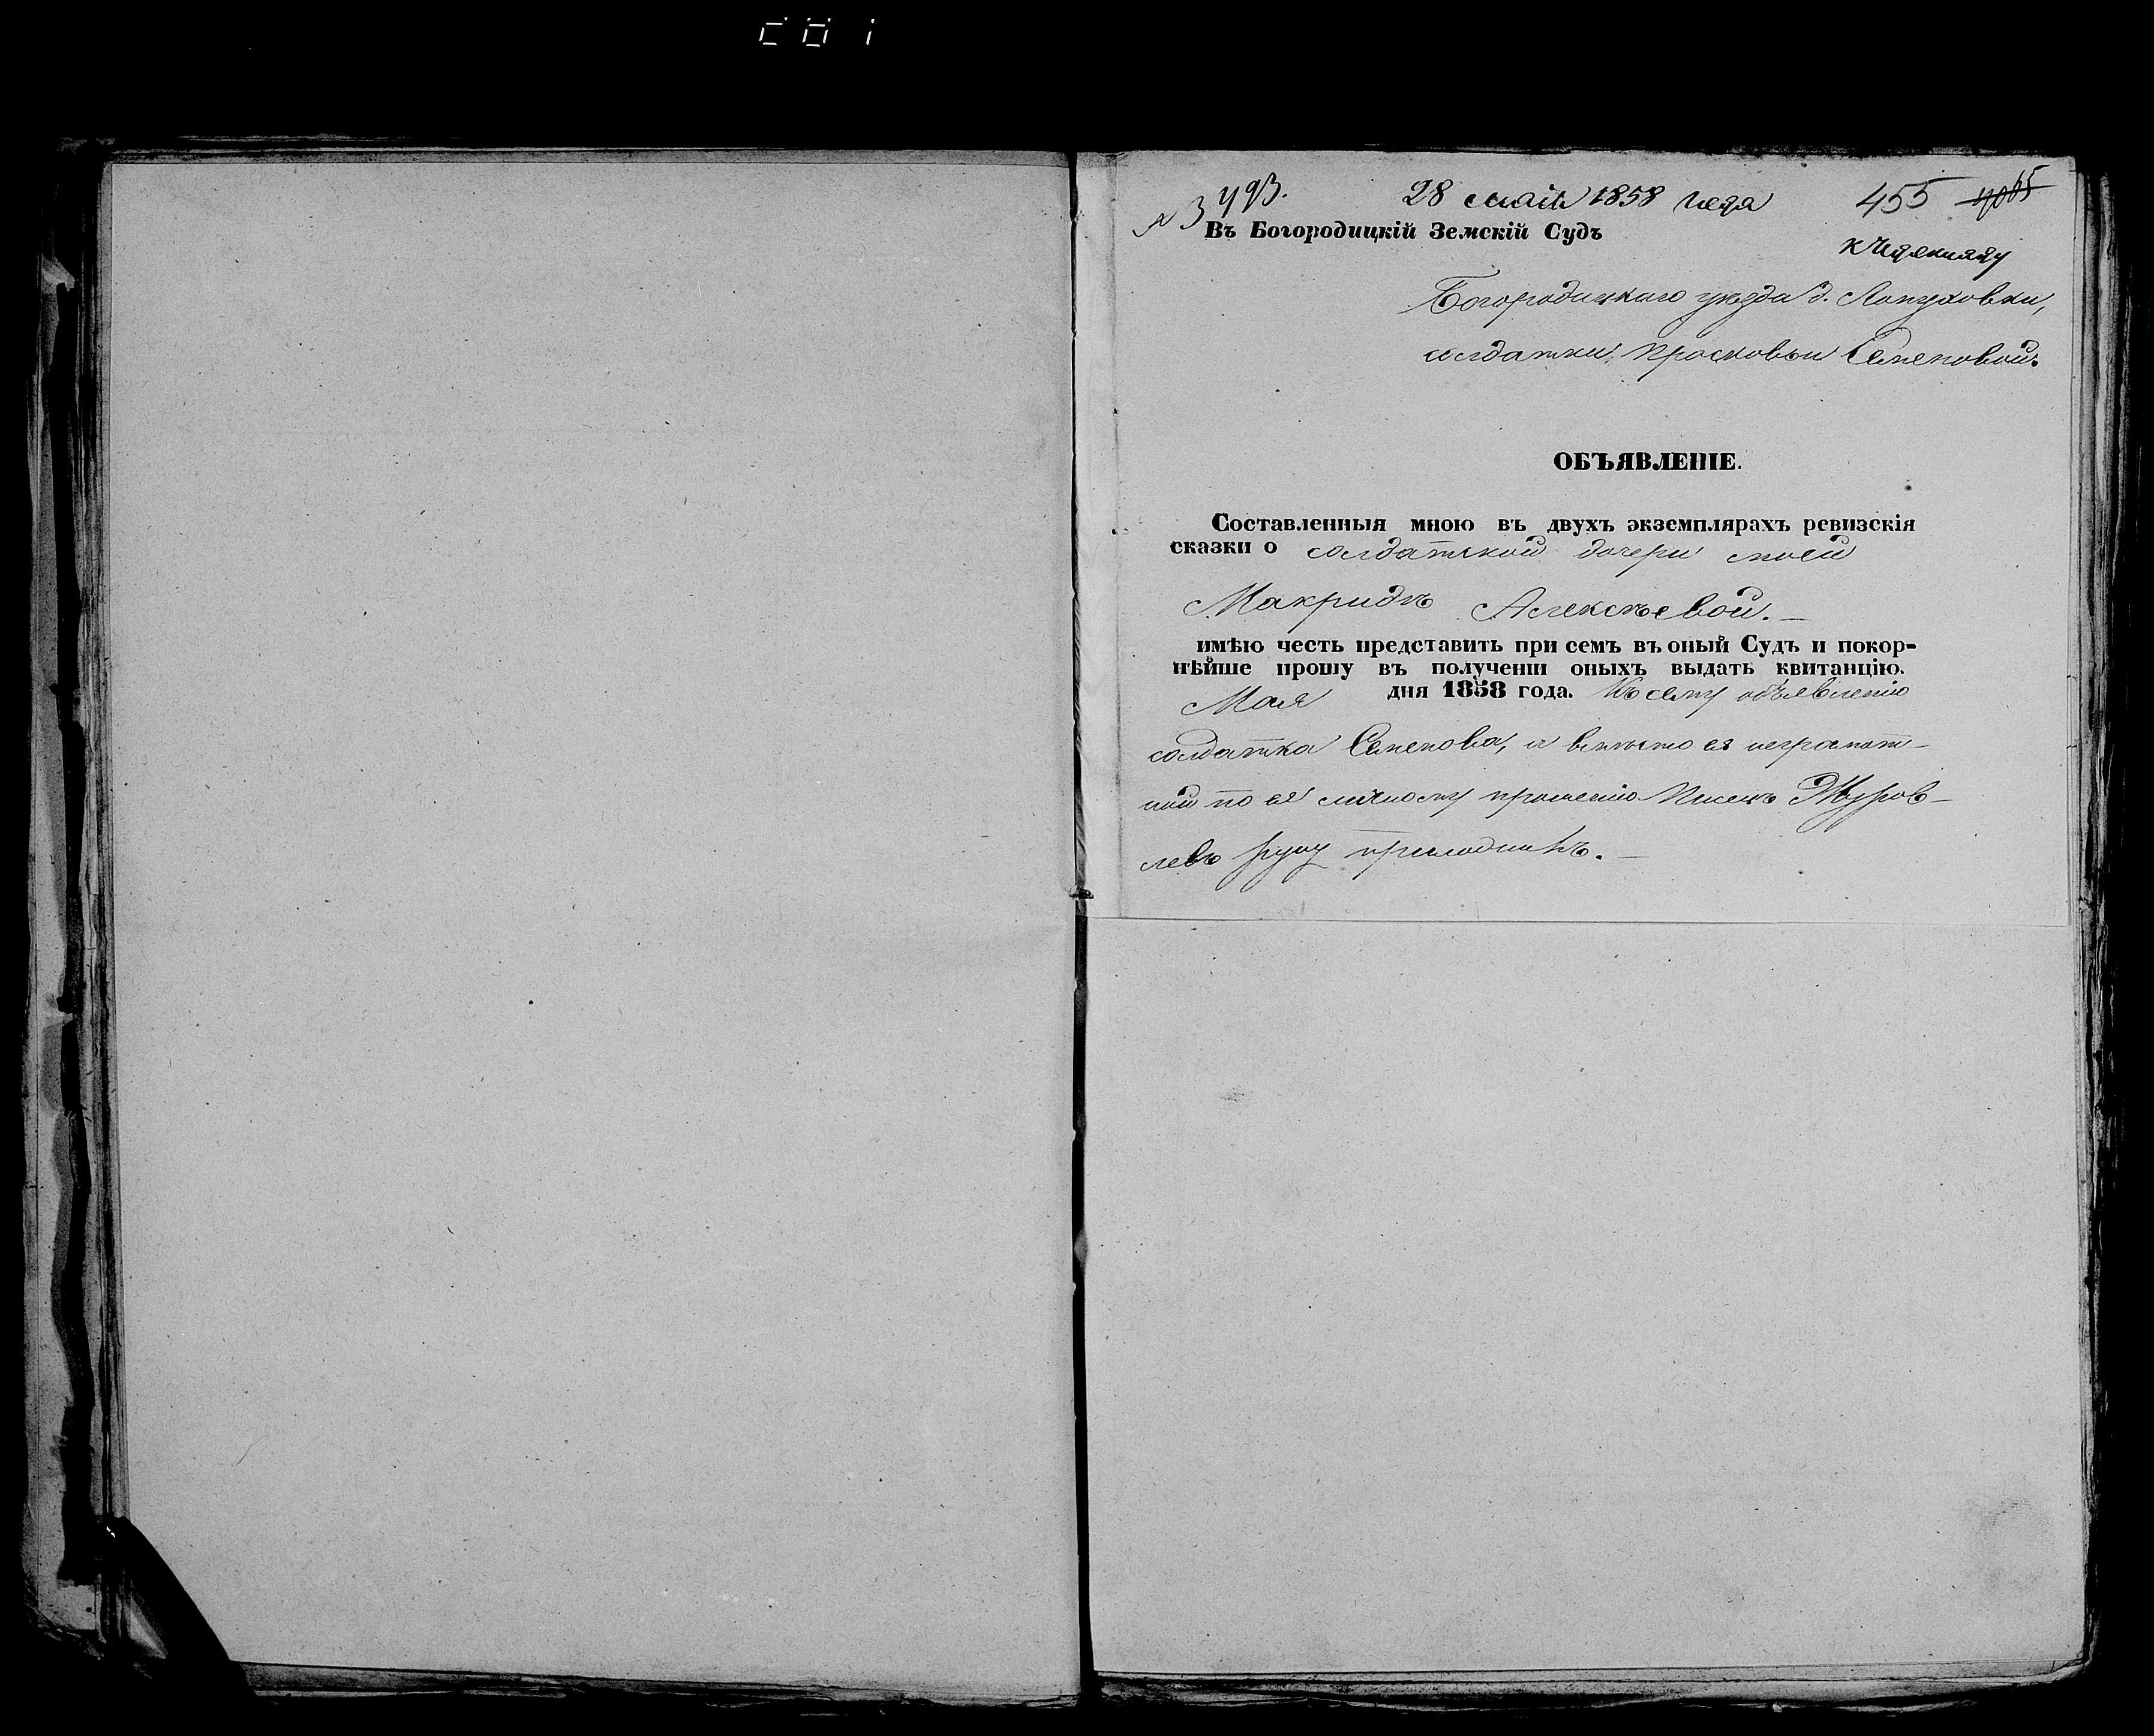 28 мая 1858 года 455 4065
№ 3493.
Въ Богородицкій Земскій Судъ
Богородицкаго уѣзда д. Лопуховки,
солдатки Просковьи Семеновой.
ОБЪЯВЛЕНІЕ.
Составленныя мною въ двухъ экземплярахъ ревизскія
сказки о солдатской дочери моей
Макридѣ Алексѣевой.—
имѣю честь представить при семъ въ оный Судъ и покор-
нѣйше прошу въ полученіи оныхъ выдать квитанцію.
Мая дня 1858 года. Къ сему объявленію
солдатка Семенова, а вмѣсто ея неграмот-
ной по ея личному прошенію Писецъ Журов-
левъ руку приложилъ.—